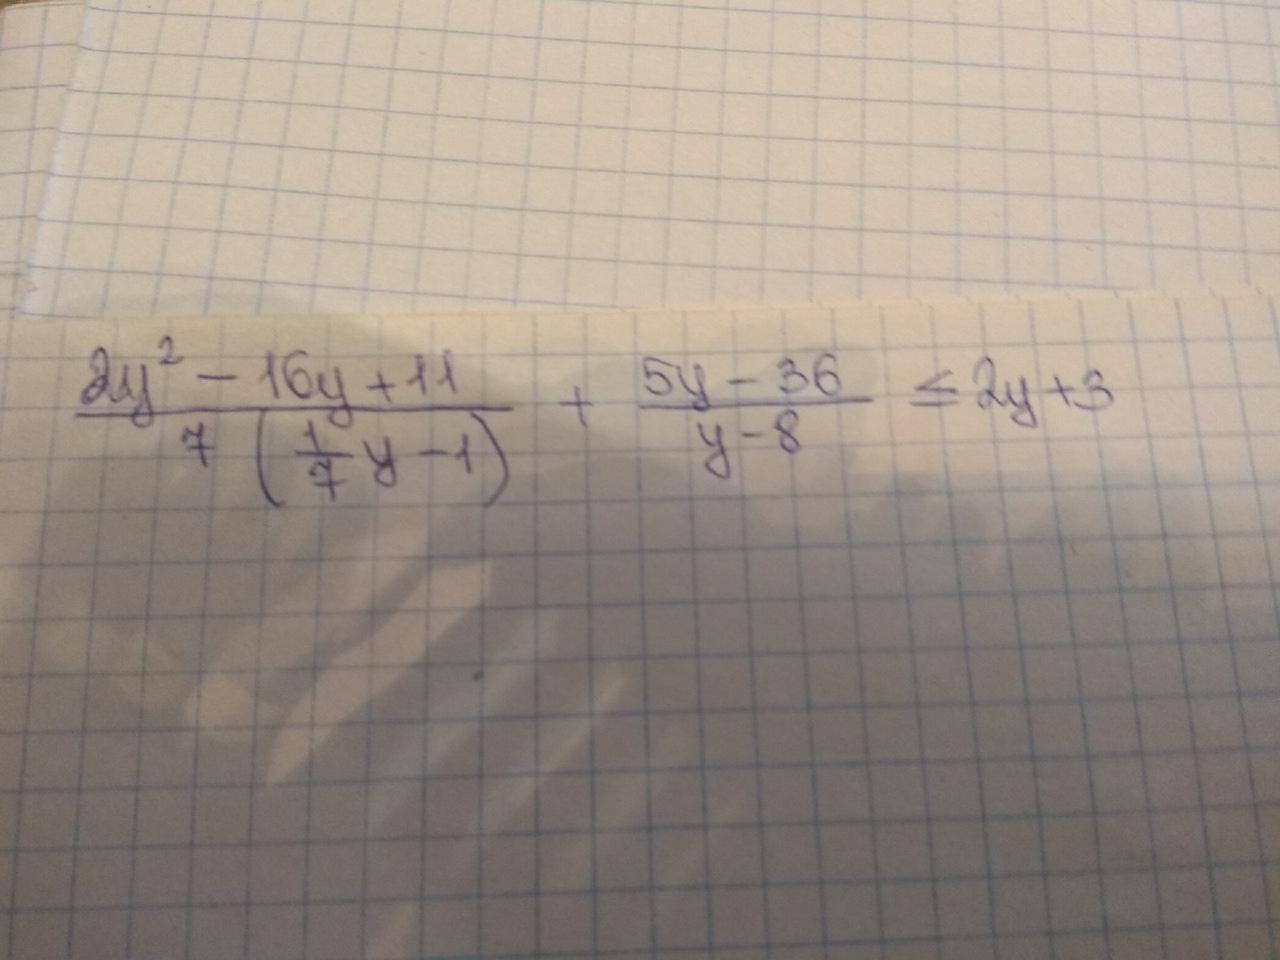 2y² - 16y + 11 / 7 (1/7 y - 1) + 5y - 36 / y - 8 ≤ 2y + 3